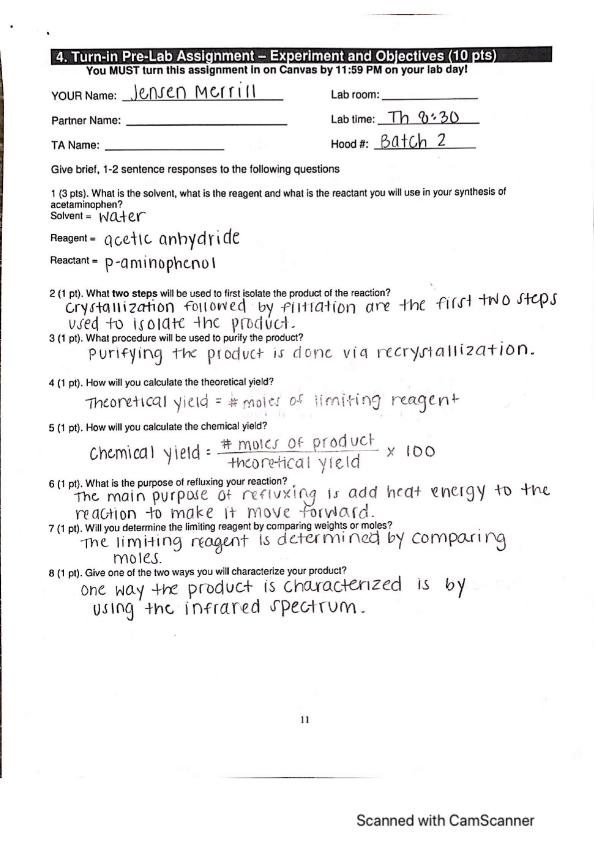 4. Turn-in Pre-Lab Assignment – Experiment and Objectives (10 pts)
You MUST turn this assignment in on Canvas by 11:59 PM on your lab day!
YOUR Name: Jensen Merrill Lab room:
Partner Name: Lab time: Th 8:30
TA Name: Hood #: Batch 2
Give brief, 1-2 sentence responses to the following questions
1 (3 pts). What is the solvent, what is the reagent and what is the reactant you will use in your synthesis of
acetaminophen?
Solvent = water
Reagent = acetic anhydride
Reactant = p-aminophenol
2 (1 pt). What two steps will be used to first isolate the product of the reaction?
Crystallization followed by filtration are the first two steps
used to isolate the product.
3 (1 pt). What procedure will be used to purify the product?
Purifying the product is done via recrystallization.
4 (1 pt). How will you calculate the theoretical yield?
Theoretical yield = # moles of limiting reagent
5 (1 pt). How will you calculate the chemical yield?
Chemical yield = # moles of product / theoretical yield × 100
6 (1 pt). What is the purpose of refluxing your reaction?
The main purpose of refluxing is add heat energy to the
reaction to make it move forward.
7 (1 pt). Will you determine the limiting reagent by comparing weights or moles?
The limiting reagent is determined by comparing
moles.
8 (1 pt). Give one of the two ways you will characterize your product?
One way the product is characterized is by
using the infrared spectrum.
11
Scanned with CamScanner